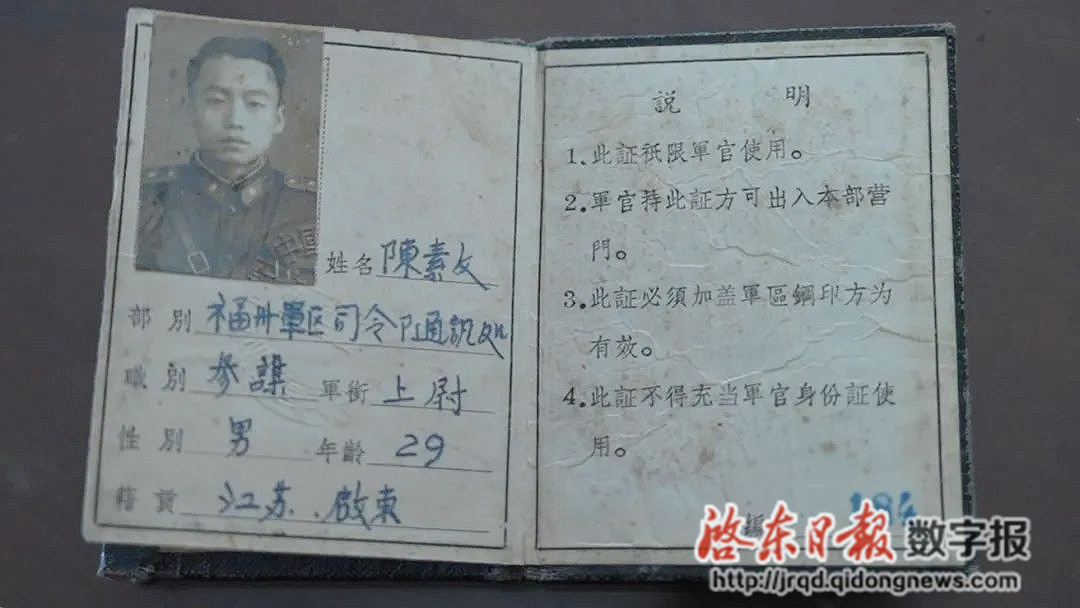 姓名 陳素文
部別 福州軍区司令部通訊处
職別 参謀 軍銜 上尉
性別 男 年齡 29
籍貫 江苏.啟東
説 明
1.此証祇限軍官使用。
2.軍官持此証方可出入本部营
門。
3.此証必须加盖軍區鋼印方为
有效。
4.此証不得充当軍官身份証使
用。
啓东日报 数字报
http://jrqd.qidongnews.com